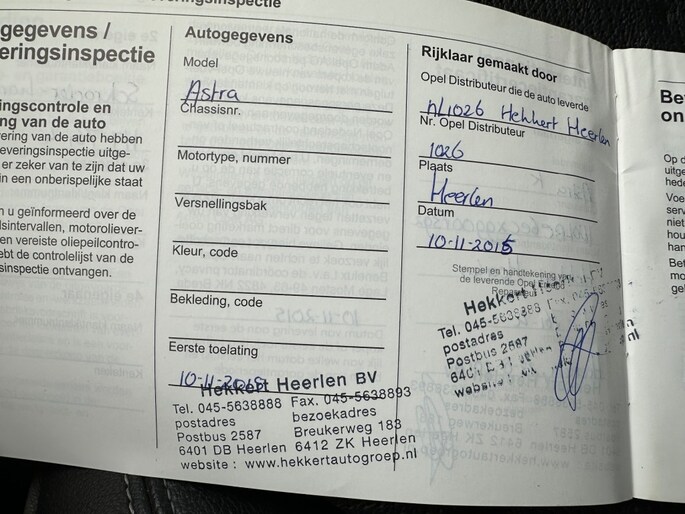 veringsinspectie
gegevens /
eringsinspectie
ingscontrole en
ng van de auto
ering van de auto hebben
everingsinspectie uitge-
er zeker van te zijn dat uw
in een onberispelijke staat
n u geïnformeerd over de
dsintervallen, motoroliever-
en vereiste oliepeilcontro-
ebt de controlelijst van de
sinspectie ontvangen.
Autogegevens
Model
Astra
Chassisnr.
Motortype, nummer
Versnellingsbak
Kleur, code
Bekleding, code
Eerste toelating
10-11-2015
Hekkert Heerlen BV
Tel. 045-5638888 Fax. 045-5638893
postadres bezoekadres
Postbus 2587 Breukerweg 188
6401 DB Heerlen 6412 ZK Heerlen
website : www.hekkertautogroep.nl
Rijklaar gemaakt door
Opel Distributeur die de auto leverde
NL1026 Hekkert Heerlen
Nr. Opel Distributeur
1026
Plaats
Heerlen
Datum
10-11-2015
Stempel en handtekening van
de leverende Opel
Hekkert
Tel. 045-5638888 Fax.
postadres
Postbus 2587
6401
website
nl
Be
on
Op d
uitge
Voe
serv
niet
hou
han
Bet
mo
gel